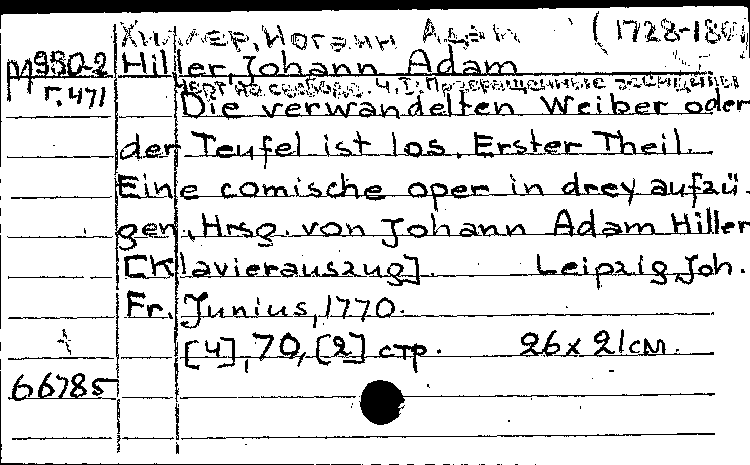 Хиллер, Иоганн Адам (1728-180
М980-2 Hiller, Johann Adam
Г.471 Черт на свободе. Ч.I: Превращенные женщины
Die verwandelten Weiber oder
der Teufel ist los. Erster Theil.
Eine comische oper in drey aufzü-
gen, Hrsg. von Johann Adam Hiller
[Klavierauszug]. Leipzig, Joh.
Fr. Junius, 1770.
[4], 70, [2] стр. 26x21см.
66785